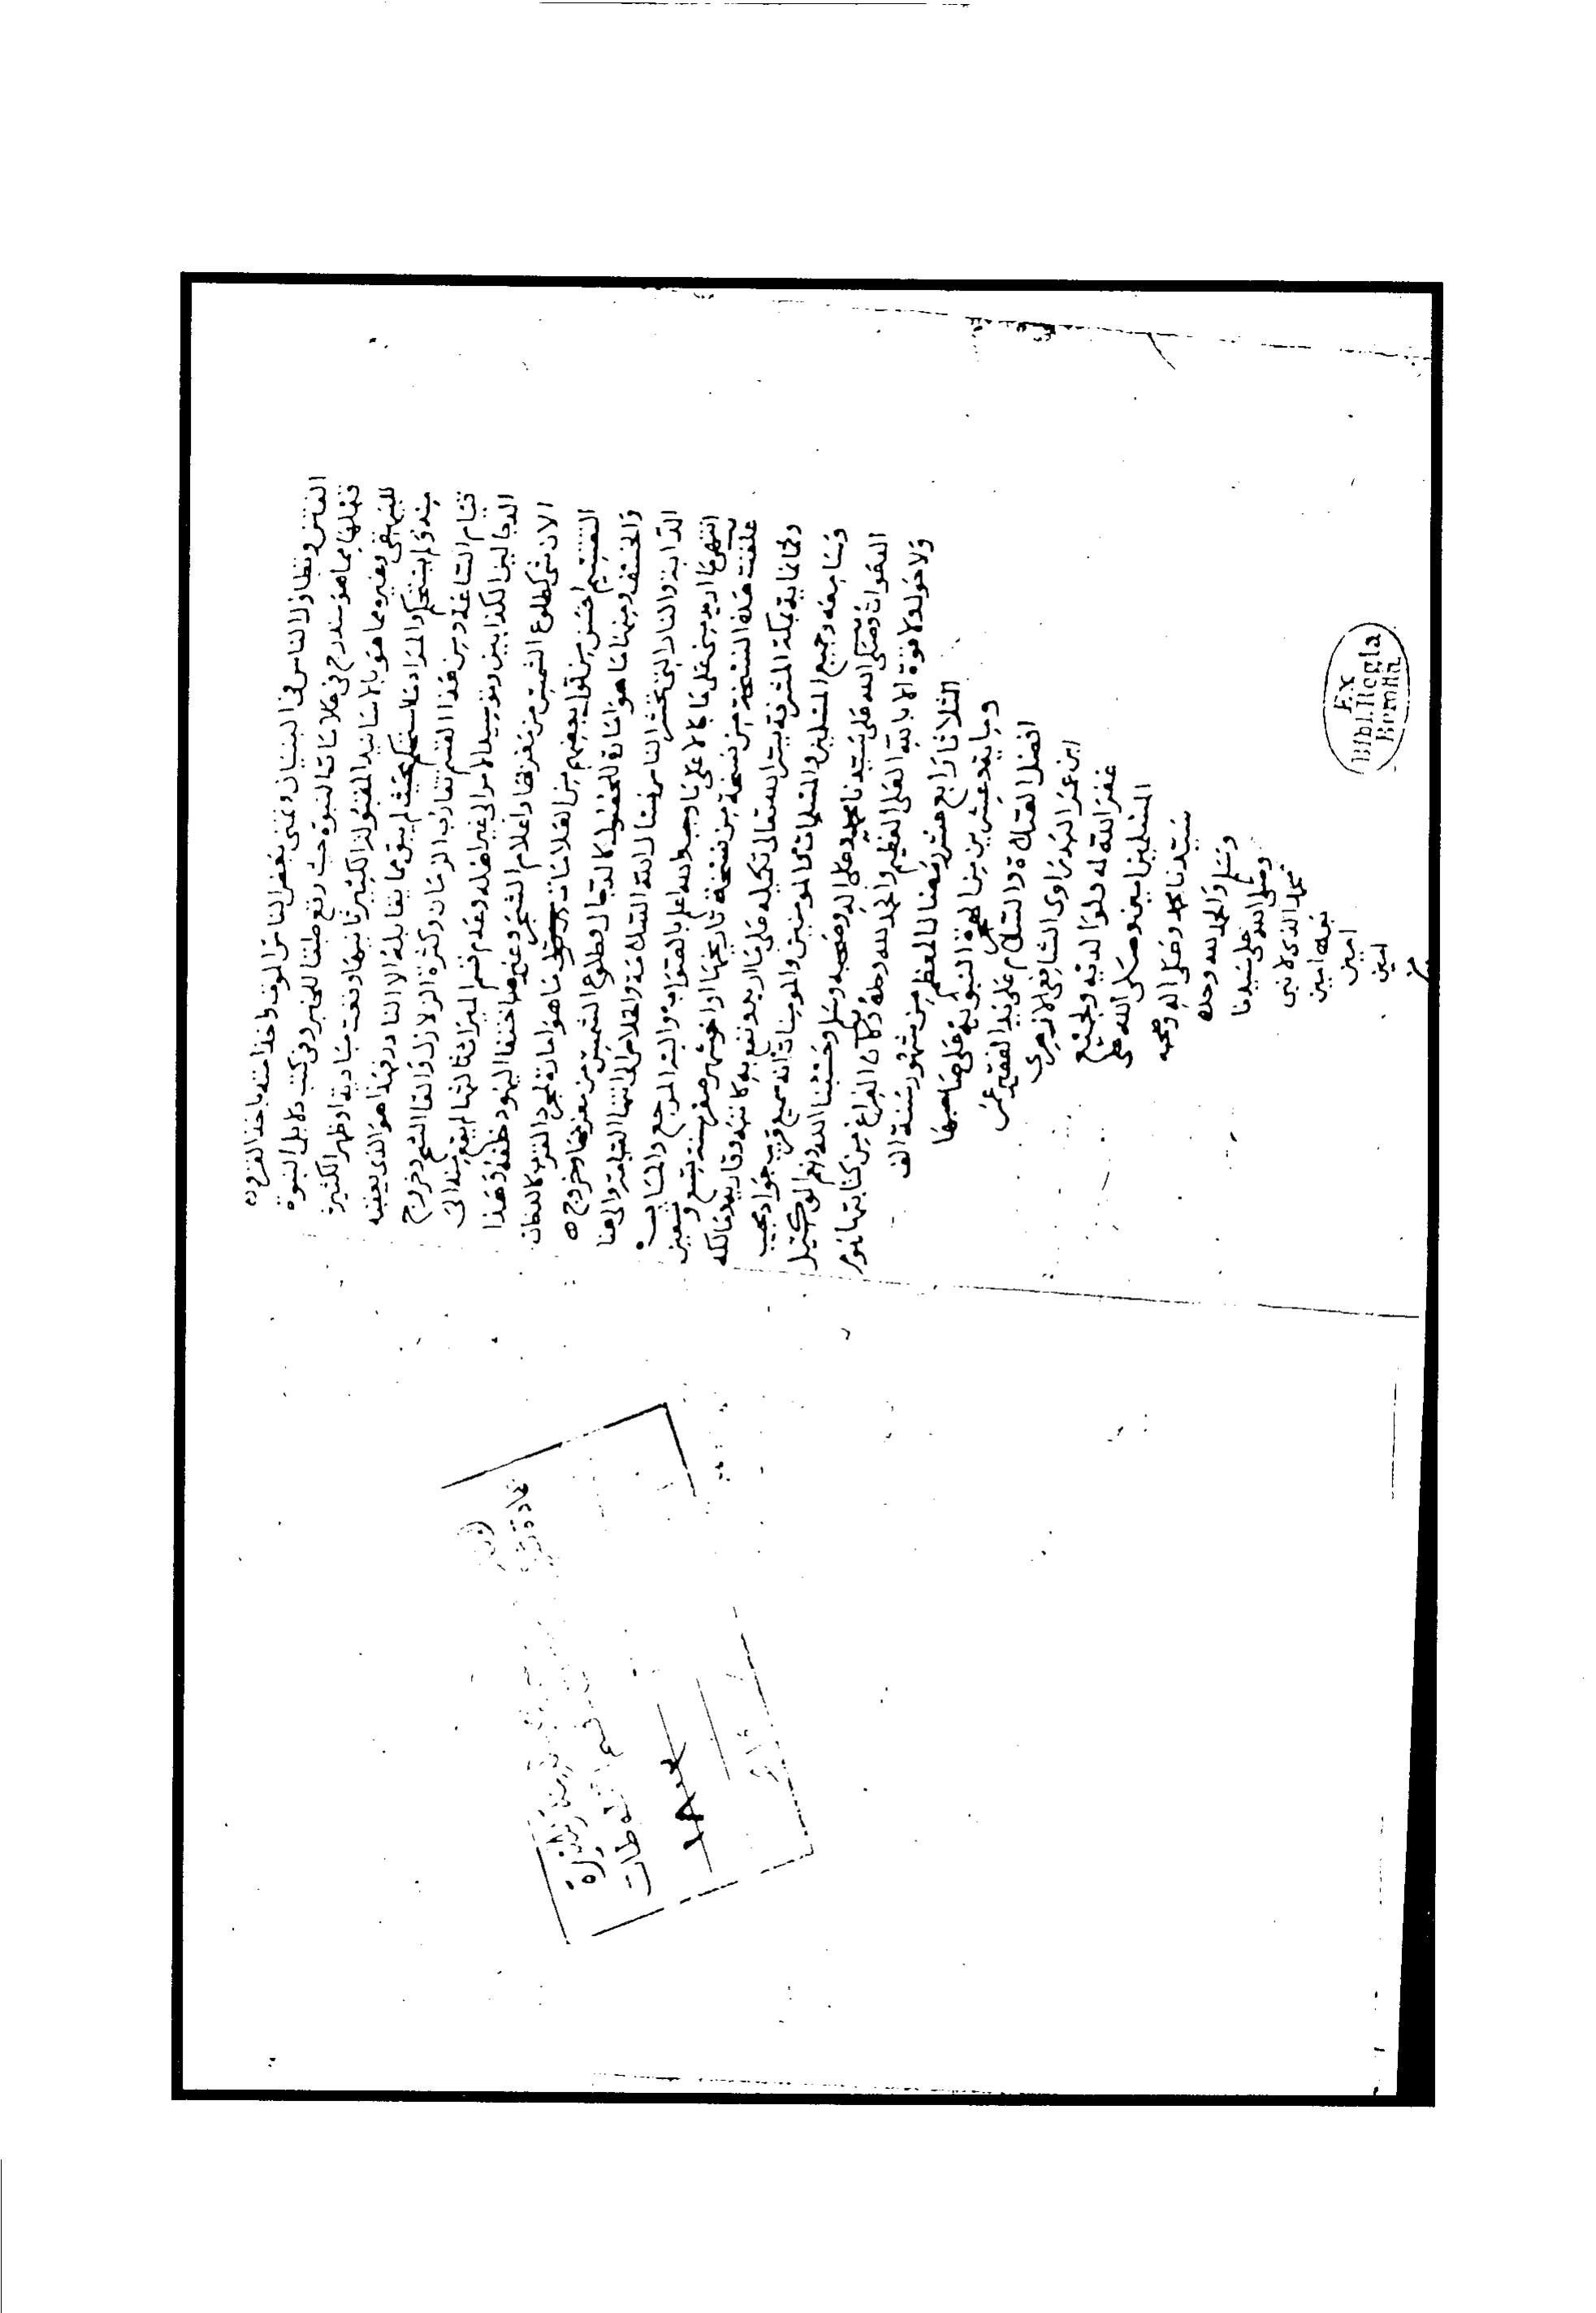 الفتن وتطاول الناس في البنيان وتمني بعض الناس الموت واخذ امته باخذ القرون
قبلها مما هو مندرج في علامات النبوة حيث وقع طبقا للخبر وفي كتب دلايل النبوة
للبيهقي وغيره مما هو بالاسانيد المقبولة الكثير ثانيها وقعت مباديه او ظهر الكثير
منه ولم يستحكم والمراد ما استحكم بحيث لم يبق مما يقابله الا النادر فهذا هو الذي يعقبه
قيام الساعة ومن هذا القسم تقارب الزمان وكثرة الزلازل والقا الشح وخروج
الدجالين الكذابين وتوسيد الامر الى غير اهله وعدم قسم الميراث ثالثها لم يقع منه الى
الان شي كطلوع الشمس من مغربها واعلام الشجر وغيرها اختفا اليهود خلفه وهذا
التقسيم احسن من قول بعضهم من العلامات ما هو امارة لمجرد القرب كالدخان
والخسف ومنها ما هو امارة للحصول كالدجال وطلوع الشمس من مغربها وخروج
الدابة والنار التي تحشر الناس نسال الله السلامة والخلاص الى انتها القيامة والى هنا
انتهى ما اريد مني على ما كالا على ما وجه والله اعلم بالصواب واليه المرجع والماب
علقت هذه النسخة من نسخة من نسخة تاريخها اواخر شهر صفر سنة تسع وتسعين
وثمانماية بمكة المشرفة يسر الله تعالى تكميله على ما اريد ونفع به كاتبه وقاريه ومالكه
وسامعه وجميع المسلمين والمسلمات والمومنين والمومنات انه سميع قريب جواد مجيب
الدعوات وصلى الله على سيدنا محمد وعلى اله وصحبه وسلم وحسبنا الله ونعم الوكيل
ولا حول ولا قوة الا بالله العلي العظيم والحمد لله وحده وكان الفراغ من كتابتها يوم
الثلاثا رابع عشر رمضان المعظم من شهور سنة الف
وماية وعشرين من الهجرة النبوية على صاحبها
افضل الصلاة والسلام على يد الفقير عمر
ابن عمر البدراوي الشافعي الازهري
غفر الله له ولوالديه ولجميع
المسلمين امين وصلى الله على
سيدنا محمد وعلى اله وصحبه
وسلم والحمد لله وحده
وصلى الله على سيدنا
محمد الذي لا نبي
بعده امين
امين
امين
Ex
Bibl. Regia
Berolin.
عمادة شؤ
المنورة
قسم المخطوطات